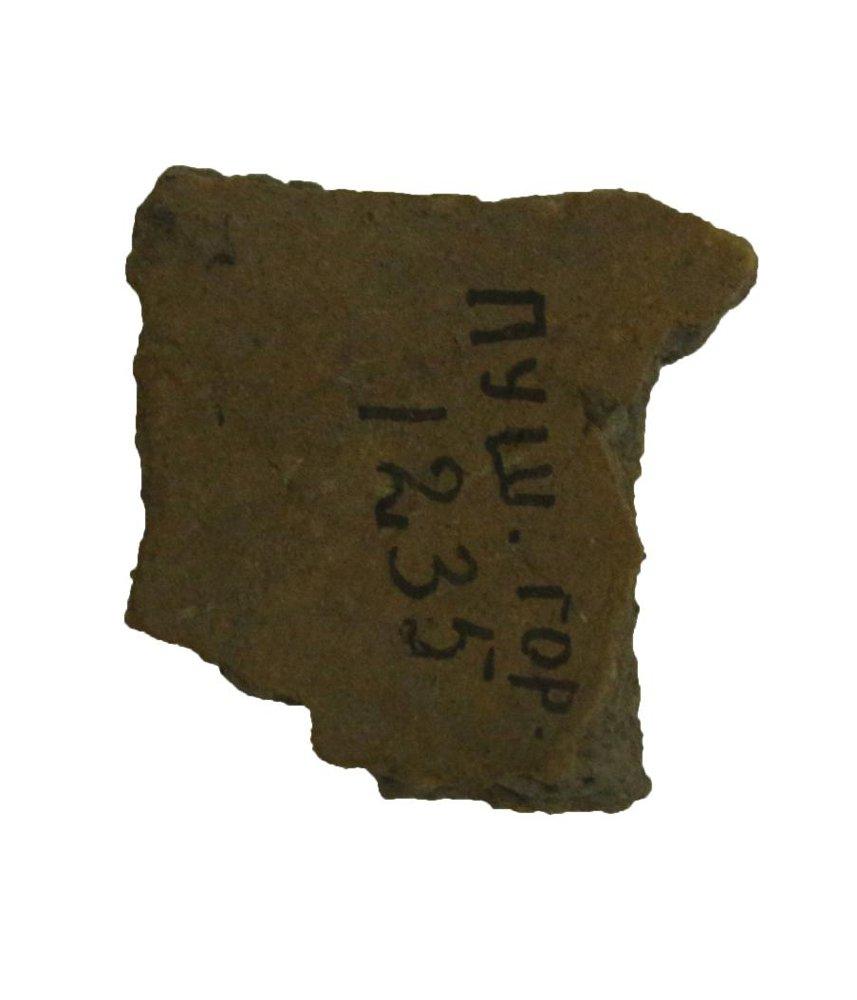 Пуш. гор.
1235